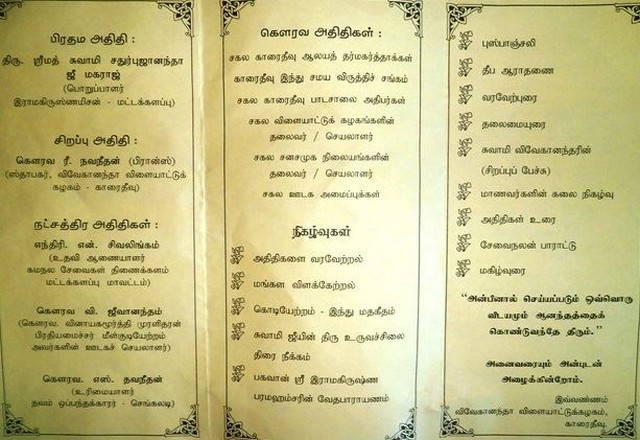 பிரதம அதிதி :
திரு. ஸ்ரீமத் சுவாமி சதுர்புஜானந்தா
ஜீ மகராஜ்
(பொறுப்பாளர்
இராமகிருஸ்ணமிசன் - மட்டக்களப்பு)
சிறப்பு அதிதி :
கௌரவ ரீ. நவநீதன் (பிரான்ஸ்)
(ஸ்தாபகர், விவேகானந்தா விளையாட்டுக்
கழகம் - காரைதீவு)
நட்சத்திர அதிதிகள் :
எந்திரி. என். சிவலிங்கம்
(உதவி ஆணையாளர்
கமநல சேவைகள் திணைக்களம்
மட்டக்களப்பு மாவட்டம்)
கௌரவ வி. ஜீவானந்தம்
(கௌரவ. விநாயகமூர்த்தி முரளிதரன்
பிரதியமைச்சர் மீள்குடியேற்றம்
அவர்களின் ஊடகச் செயலாளர்)
கௌரவ. எஸ். தவநீதன்
(உரிமையாளர்
தவம் ஒப்பந்தக்காரர் - செங்கலடி)
கௌரவ அதிதிகள் :
சகல காரைதீவு ஆலயத் தர்மகர்த்தாக்கள்
காரைதீவு இந்து சமய விருத்திச் சங்கம்
சகல காரைதீவு பாடசாலை அதிபர்கள்
சகல விளையாட்டுக் கழகங்களின்
தலைவர் / செயலாளர்
சகல சனசமூக நிலையங்களின்
தலைவர் / செயலாளர்
சகல ஊடக அமைப்புக்கள்
நிகழ்வுகள்
அதிதிகளை வரவேற்றல்
மங்கள விளக்கேற்றல்
கொடியேற்றம் - இந்து மதகீதம்
சுவாமி ஜீயின் திரு உருவச்சிலை
திரை நீக்கம்
பகவான் ஸ்ரீ இராமகிருஷ்ண
பரமஹம்சரின் வேதபாராயணம்
புஸ்பாஞ்சலி
தீப ஆராதணை
வரவேற்புரை
தலைமையுரை
சுவாமி விவேகானந்தரின்
(சிறப்புப் பேச்சு)
மாணவர்களின் கலை நிகழ்வு
அதிதிகள் உரை
சேவைநலன் பாராட்டு
மகிழ்வுரை
“அன்பினால் செய்யப்படும் ஒவ்வொரு
விடயமும் ஆனந்தத்தைக்
கொண்டுவந்தே தீரும்.”
அனைவரையும் அன்புடன்
அழைக்கின்றோம்.
இவ்வண்ணம்
விவேகானந்தா விளையாட்டுக்கழகம்,
காரைதீவு.